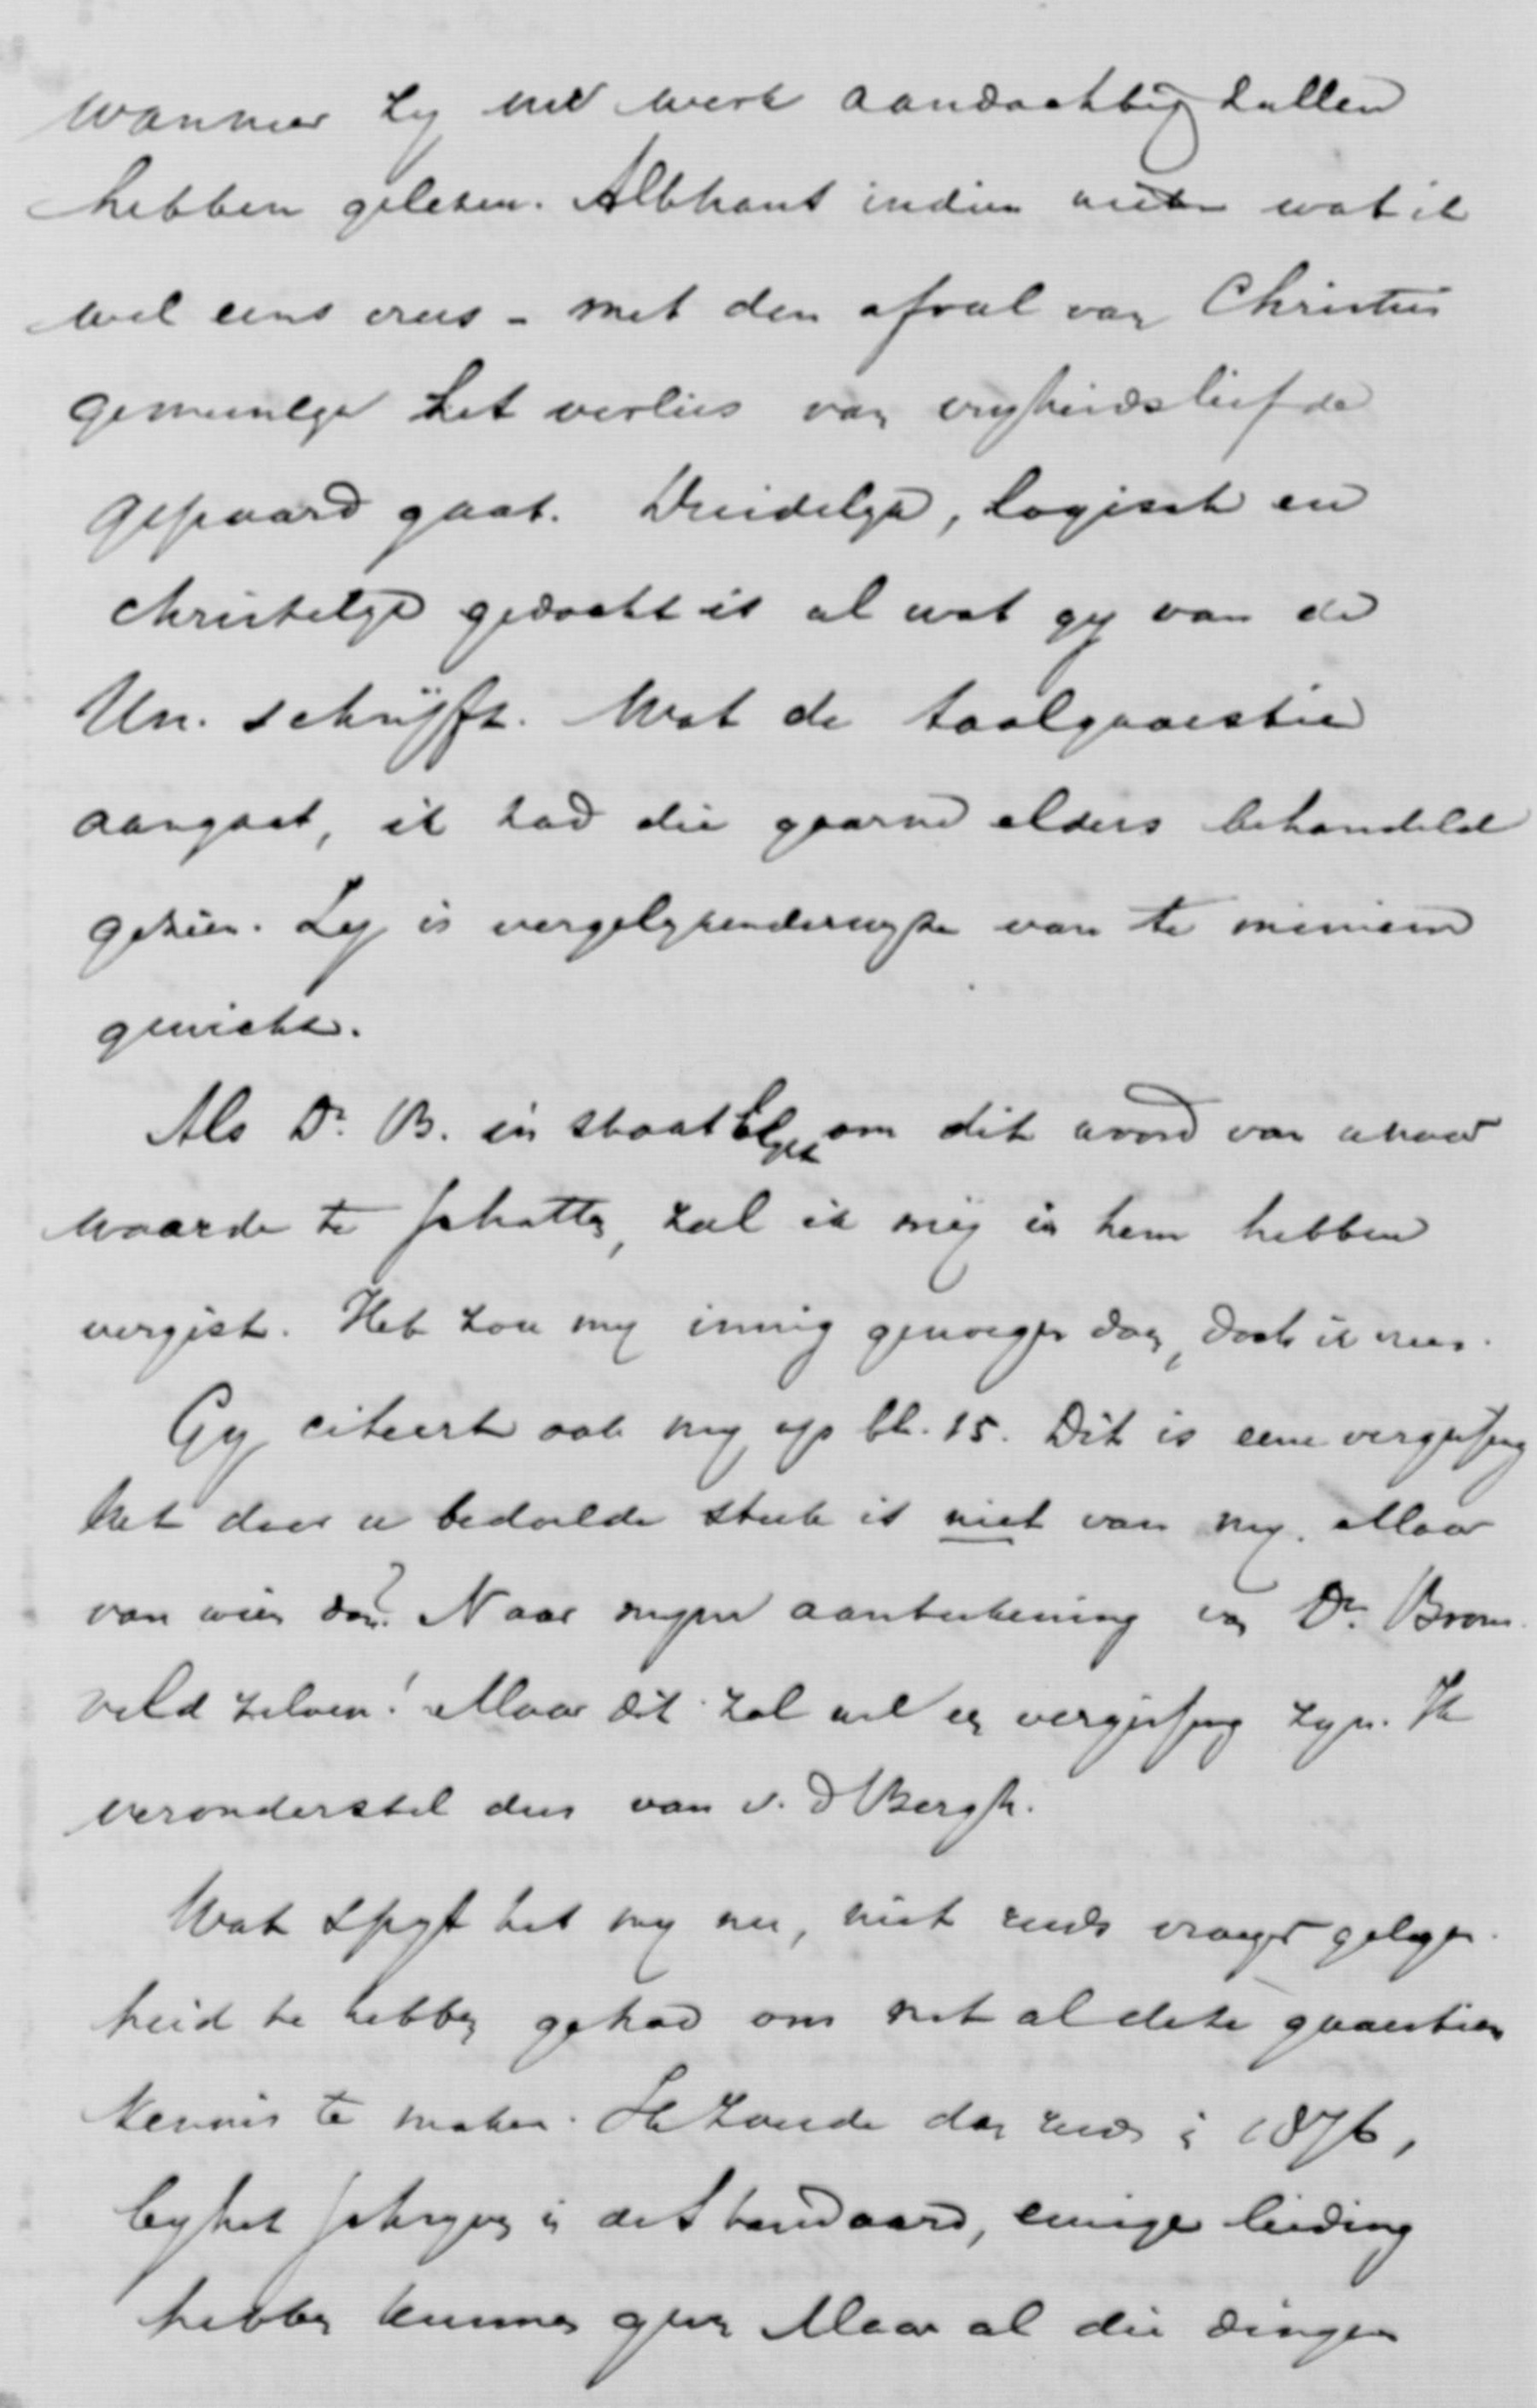 wanneer zij uw werk aandachtig zullen
hebben gelezen. Althans indien niet wat ik
wel eens vrees - met den afval van Christus
gemeenlyk het verlies van vryheidsliefde
gepaard gaat. Duidelyk, logisch en
christelyk gedacht is al wat gy van de
Un. schrijft. Wat de taalquaestie
aangaat, ik had die gaarne elders behandeld
gezien. Zy is vergelykenderwyze van te miniem
gewicht.
Als Dr. B. in staat blykt om dit woord van uhaar
waarde te schatten, zal ik mij in hem hebben
vergist. Het zou my innig genoegen doen, doch ik vrees.
Gy citeert ook my op bl. 15. Dit is eene vergissing
het door u bedoelde stuk is niet van my. Maar
van wien dan? Naar myne aanteekening van Dr. Brons
veld zelven! Maar dit zal wel een vergissing zyn. Ik
veronderstel dus van v. d Bergh.
Wat spyt het my nu, niet reeds vroeger gelegen
heid te hebben gehad om met al deze quaestien
kennis te maken. Ik zoude dan reeds in 1876,
by het schryven in de Standaard, eenige leiding
hebben kunnen geven Maar al die dingen